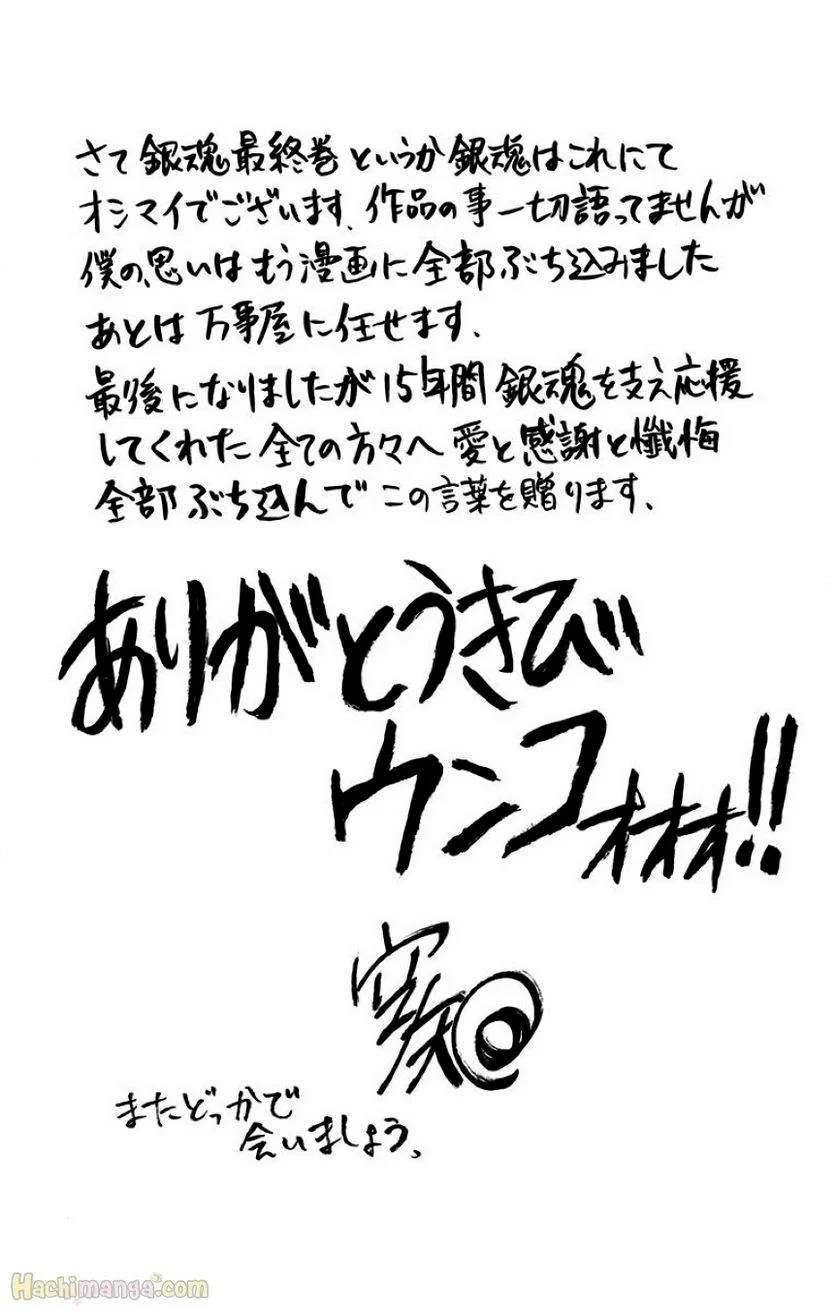 さて銀魂最終巻というか銀魂はこれにて
オシマイでございます、作品の事一切語ってませんが
僕の思いはもう漫画に全部ぶち込みました
あとは万事屋に任せます、
最後になりましたが15年間銀魂を支え応援
してくれた全ての方々へ愛と感謝と懺悔
全部ぶち込んでこの言葉を贈ります、
ありがとうきび
ウンコォオオオ!!
空知
またどっかで
会いましょう。
Hachimanga.com